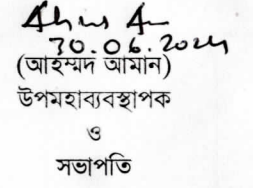 30.06.2024
(আহম্মদ আমান)
উপমহাব্যবস্থাপক
ও
সভাপতি